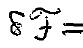 δℱ=